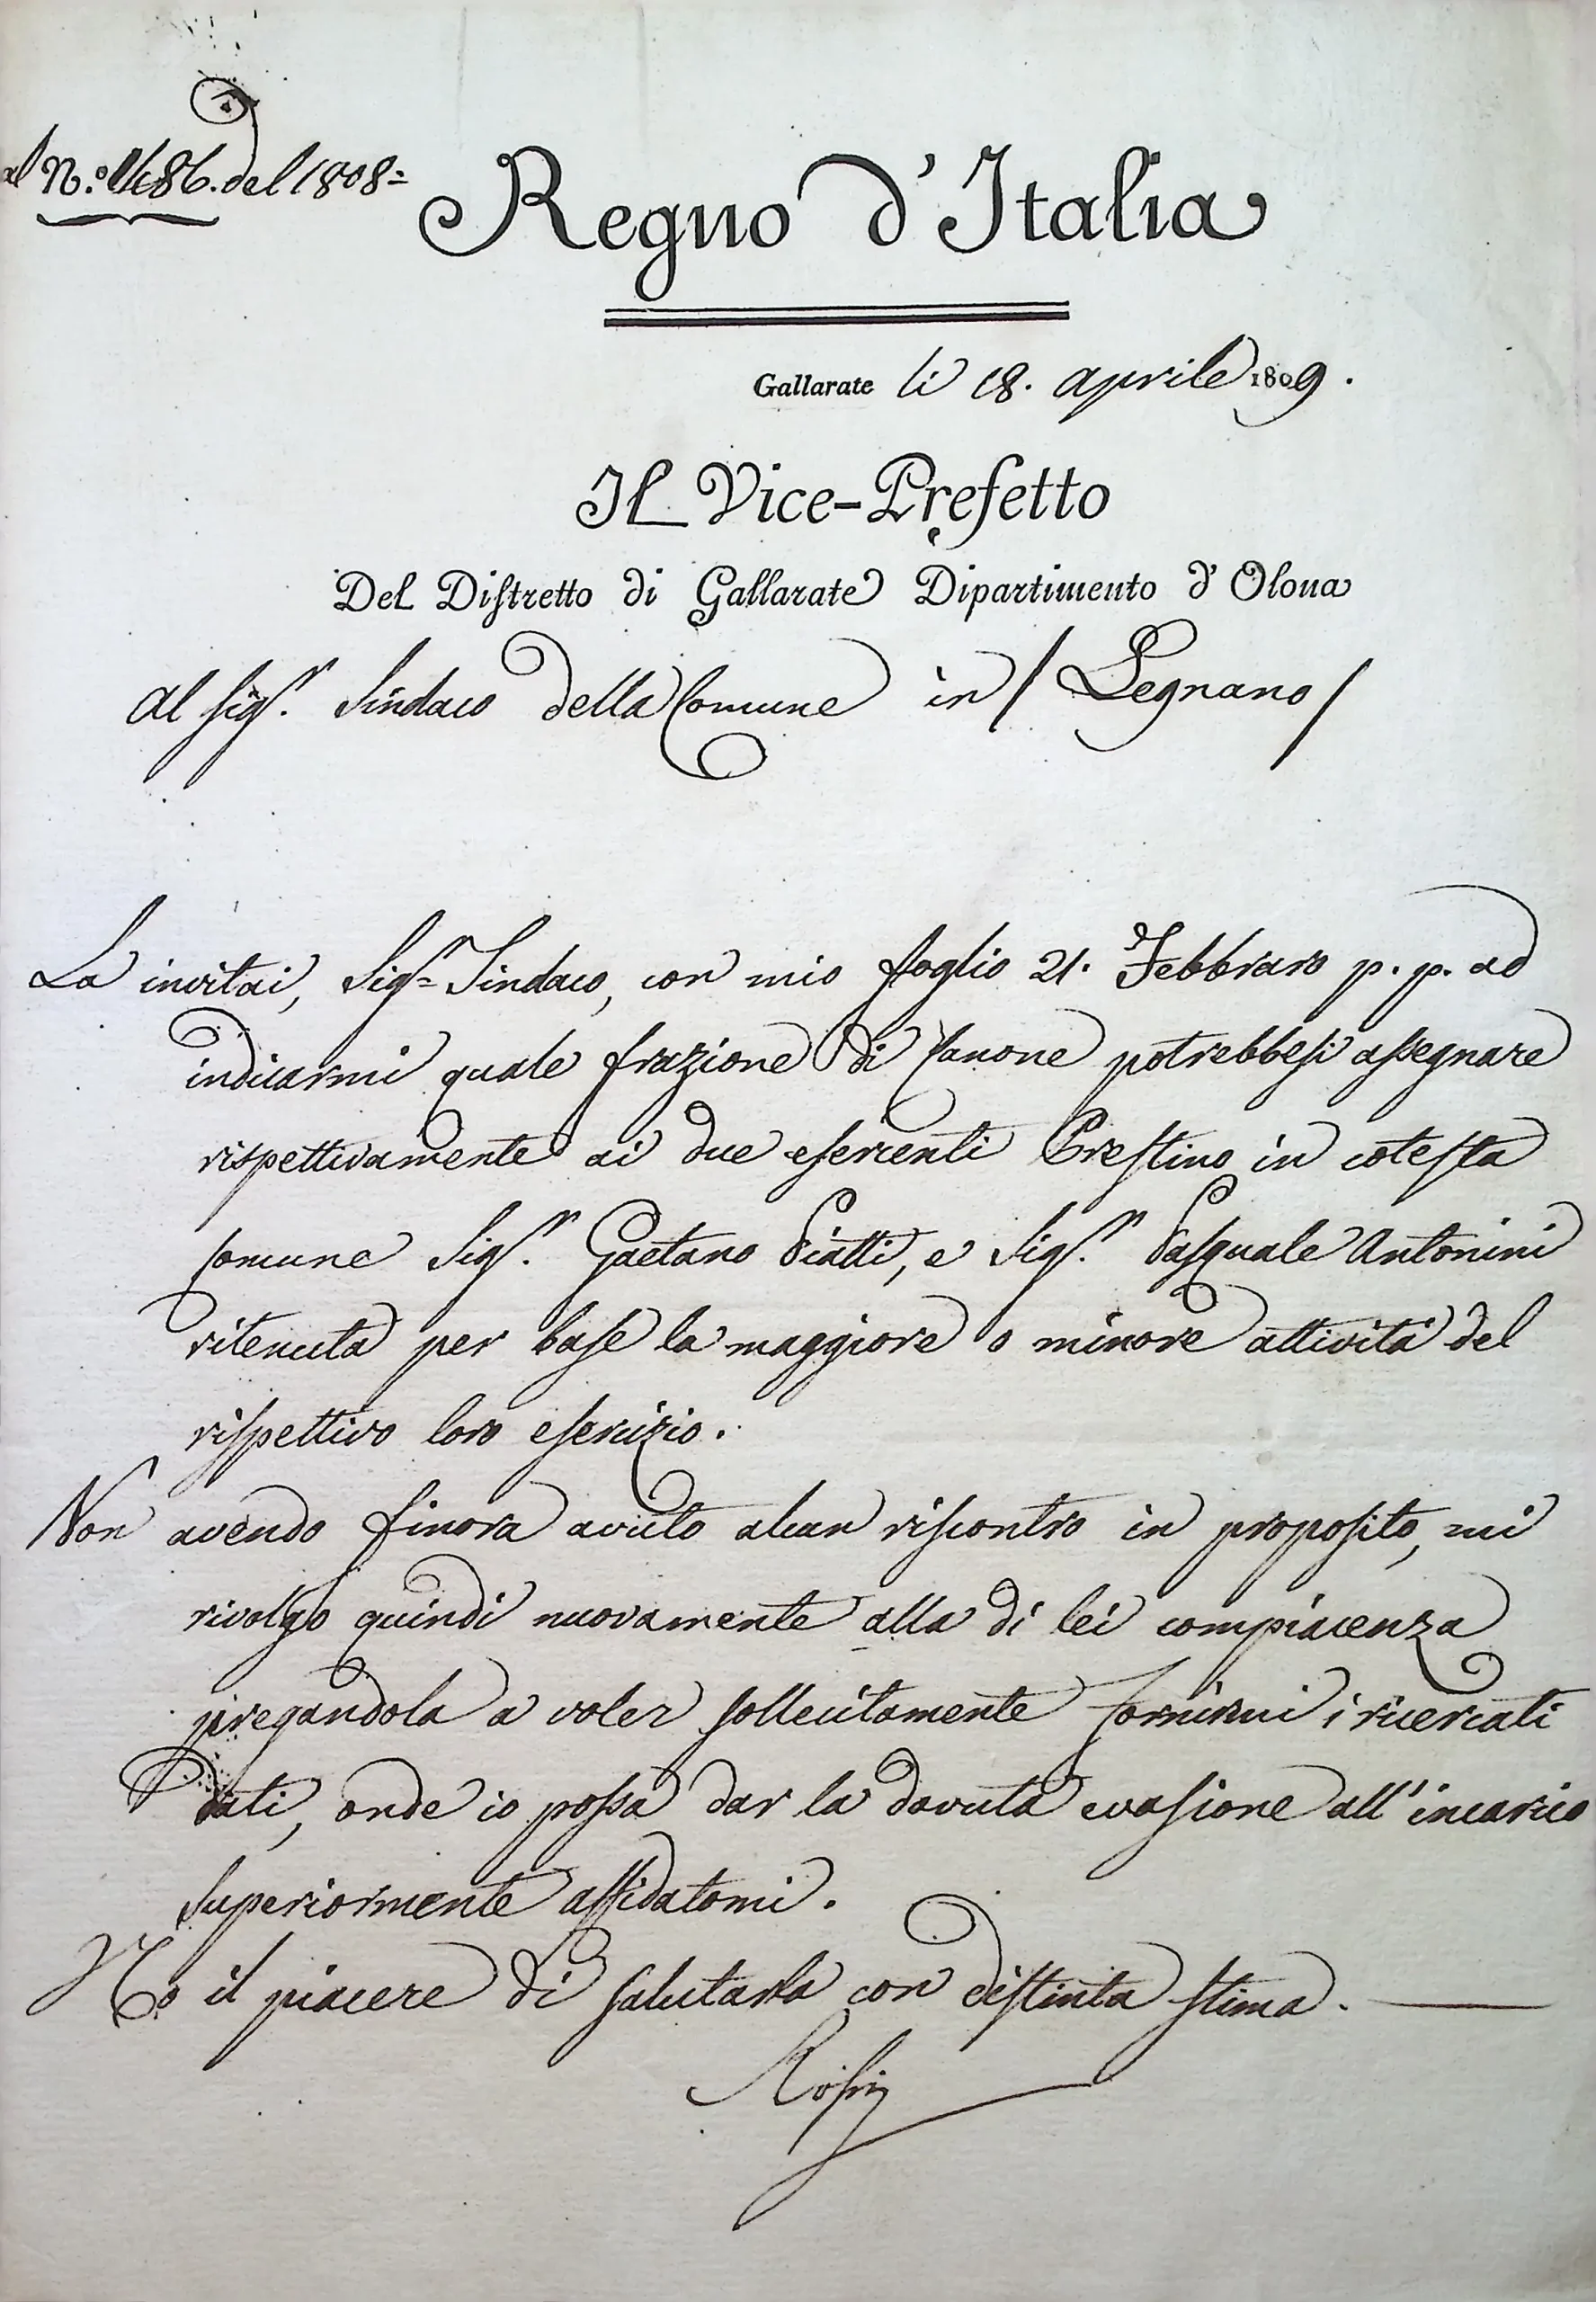 al N.º 1486. del 1808=
Regno d'Italia
Gallarate li 18. aprile 1809.
Il Vice-Prefetto
Del Distretto di Gallarate Dipartimento d'Olona
Al Sig.r Sindaco della Comune in / Legnano /
La invitai, Sig.r Sindaco, con mio foglio 21. Febbraro p. p. ad
indicarmi quale frazione di Canone potrebbesi assegnare
rispettivamente ai due esercenti Prestino in cotesta
Comune Sig.r Gaetano Piatti, e Sig.r Pasquale Antonini
ritenuta per base la maggiore o minore attività del
rispettivo loro esercizio.
Non avendo finora avuto alcun riscontro in proposito, mi
rivolgo quindi nuovamente alla di lei compiacenza
pregandola a voler sollecitamente fornirmi i ricercati
dati, onde io possa dar la dovuta evasione all'incarico
superiormente affidatomi.
Ho il piacere di salutarla con distinta stima.
Rossi